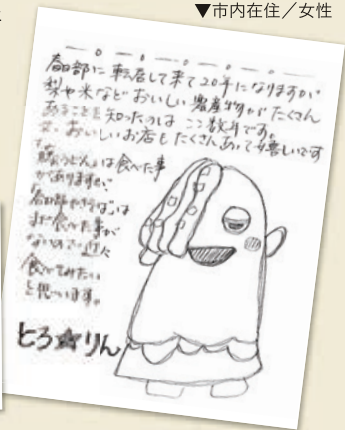 ▼市内在住／女性
春日部に転居して来て20年になりますが
梨や米などおいしい農産物がたくさん
あることを知ったのはここ数年です。
又、おいしいお店もたくさんあって嬉しいです
「藤うどん」は食べた事
がありますが、
「春日部やきそば」は
まだ食べた事が
ないので近々
食べてみたい
と思います。
とろ☆りん